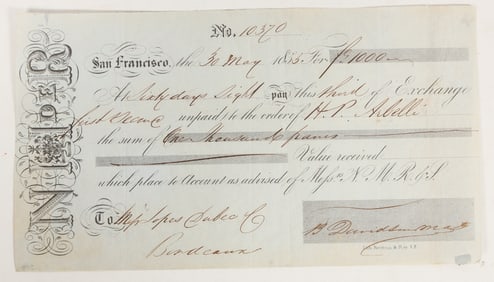 No. 10370
San Francisco, the 30 May 1855 For fcs 1000
At Sixty days Sight pay this third of Exchange
first Second unpaid to the order of H. P.
the sum of One Thousand francs
Value received
which place to Account as advised of Messrs N. M. R. & S.
To Mess Lopes Dubec
Bordeaux
B Davidson